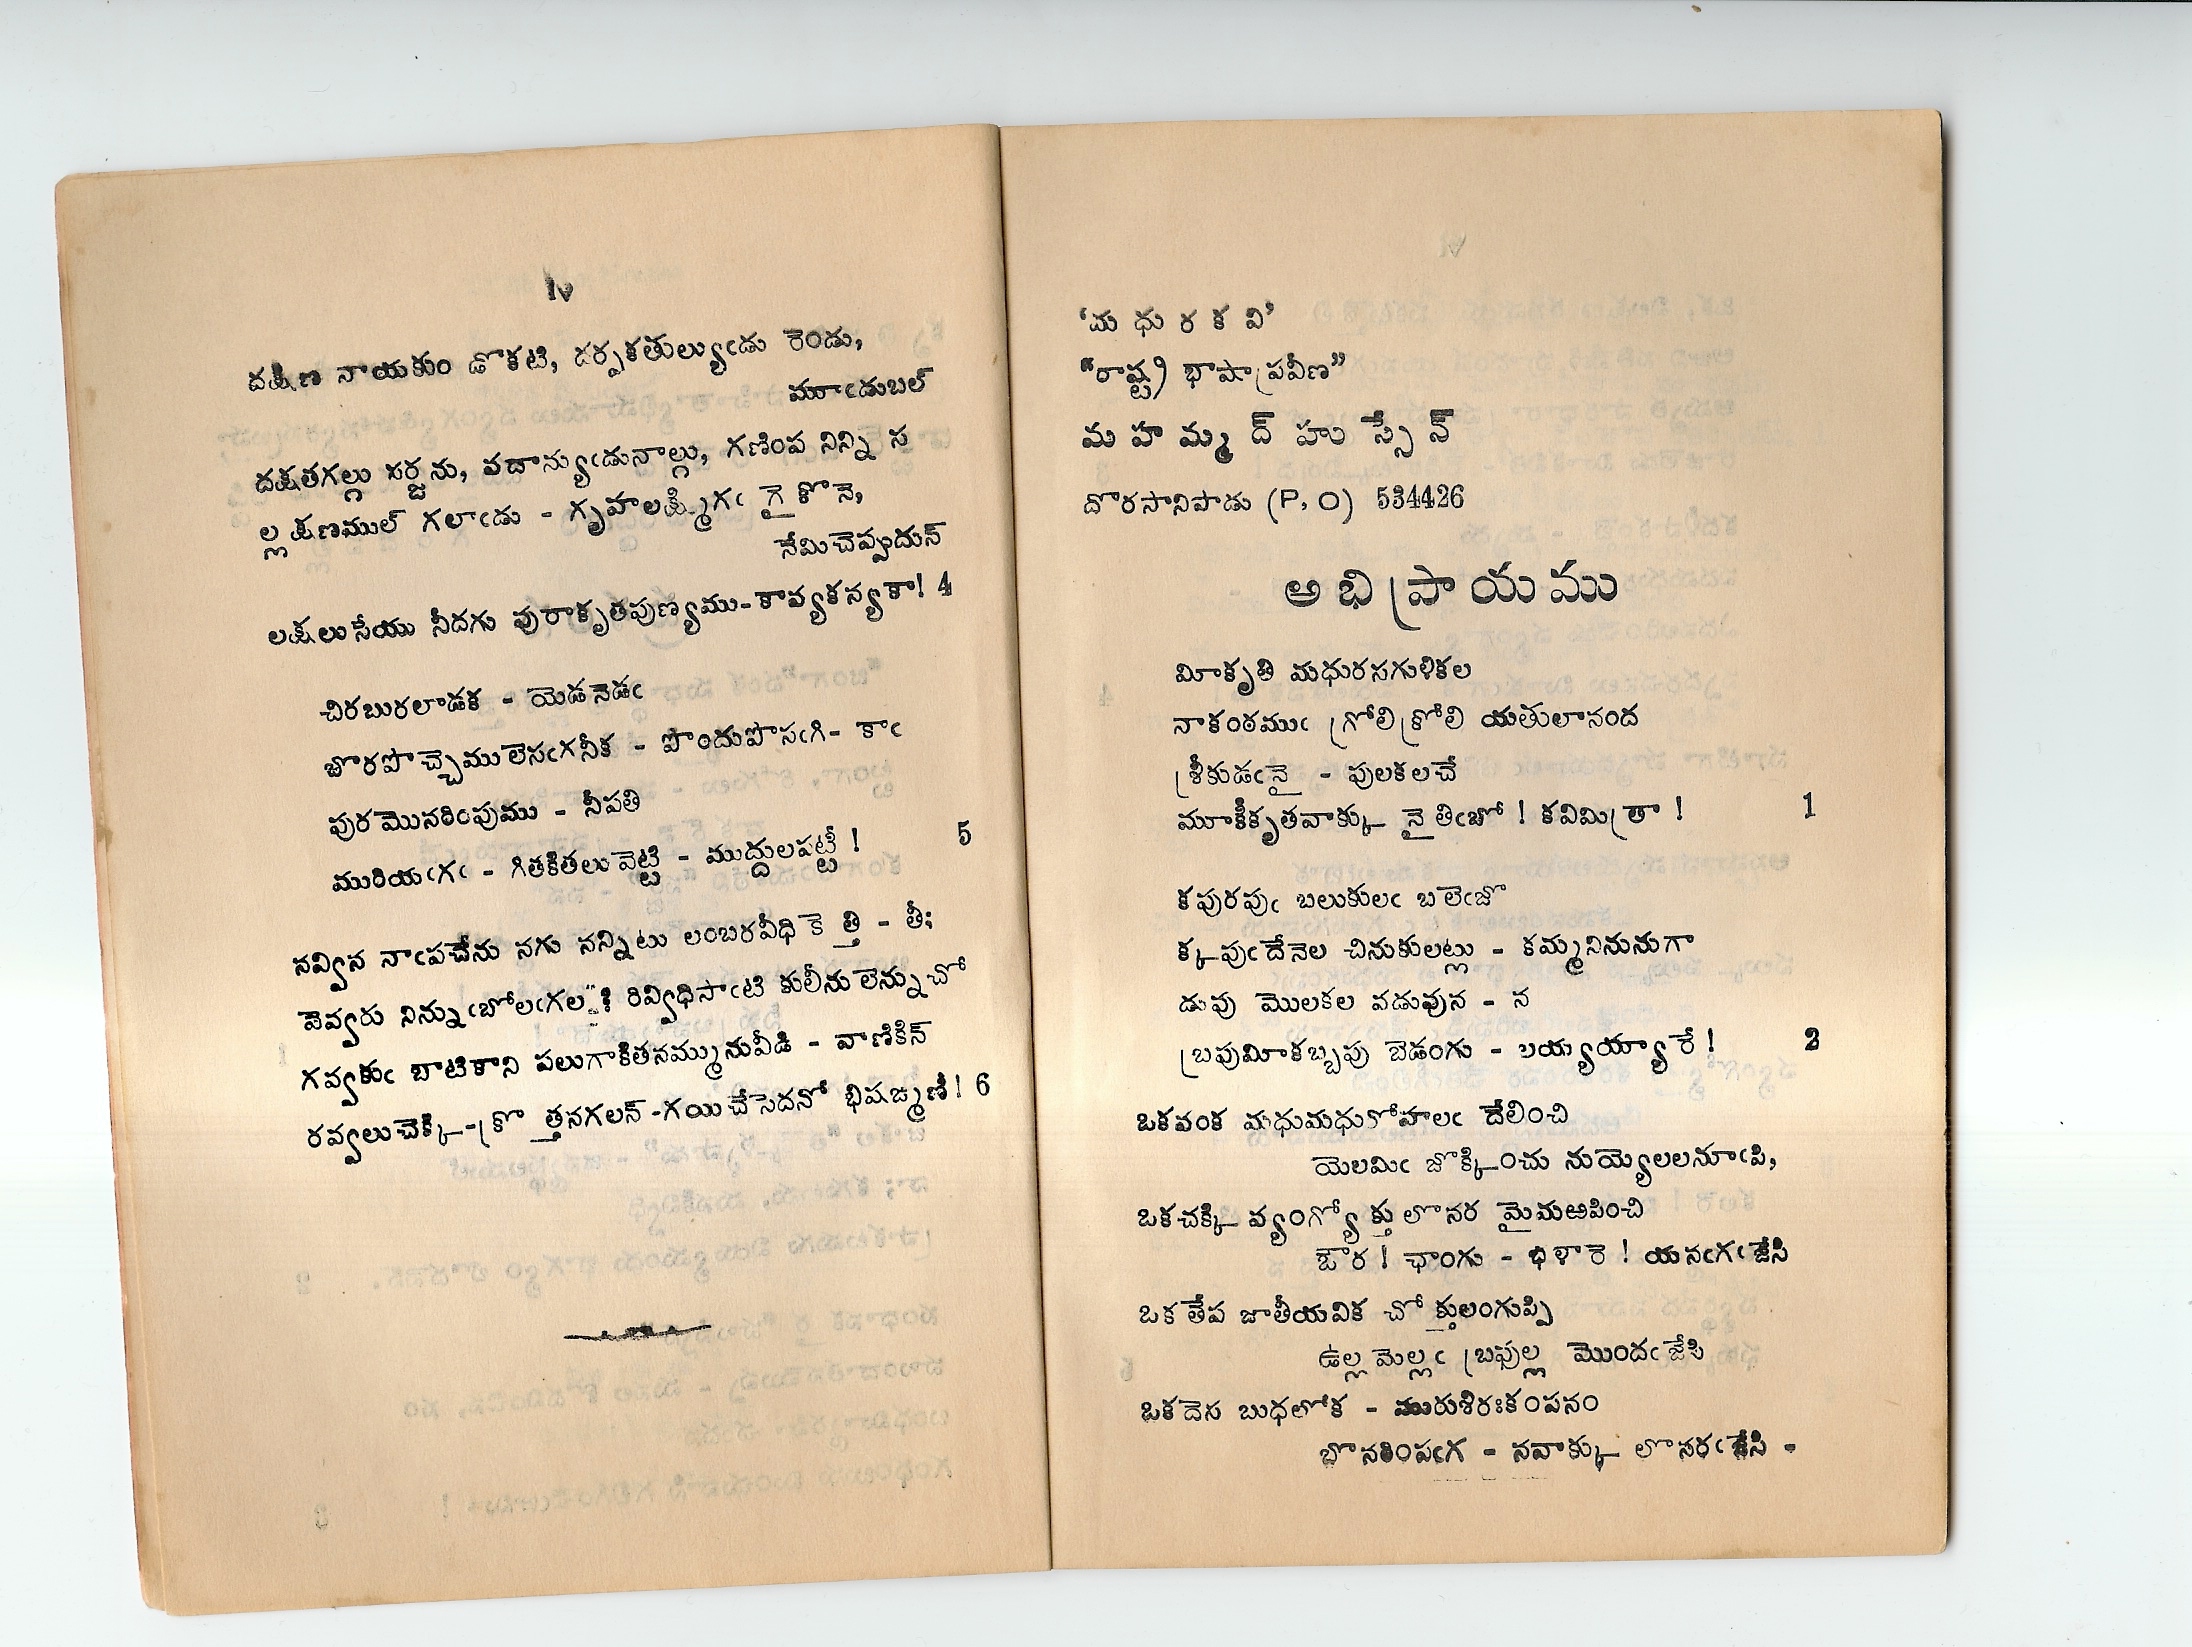 iv
దక్షిణ నాయకుం డొకటి, దర్పకతుల్యుఁడు రెండు,
మూఁడుబల్
దక్షతగల్గు సర్జను, వదాన్యుఁడునాల్గు, గణింప నిన్ని స
ల్లక్షణముల్ గలాఁడు - గృహలక్ష్మిగఁ గైకొనె,
నేమిచెప్పుదున్
లక్షలుసేయు నీదగు పురాకృతపుణ్యము-కావ్యకన్యకా! 4
చిరబురలాడక - యెడనెడఁ
బొరపొచ్చెములెసఁగనీక - పొందుపొసఁగి- కాఁ
పురమొనరింపుము - నీపతి
మురియఁగఁ - గితకితలువెట్టి - ముద్దులపట్టీ! 5
నవ్విన నాఁపచేను నగు నన్నిటు లంబరవీధి కెత్తి - తీ;
వెవ్వరు నిన్నుఁబోలఁగల ? రివ్విధిసాఁటి కులీనులెన్నుచో
గవ్వకుఁ బాటికాని పలుగాకితనమ్మునువీడి - వాణికిన్
రవ్వలుచెక్కి-క్రొత్తనగలన్-గయిచేసెదనో భిషఙ్మణీ! 6
‘మధురకవి’
“రాష్ట్ర భాషాప్రవీణ”
మహమ్మద్ హుస్సేన్
దొరసానిపాడు (P, O) 534426
అభిప్రాయము
మీకృతి మధురసగుళికల
నాకంఠముఁ గ్రోలిక్రోలి యతులానంద
శ్రీకుడఁనై - పులకలచే
మూకీకృతవాక్కు నైతిఁబో ! కవిమిత్రా ! 1
కపురపుఁ బలుకులఁ బలెఁజొ
క్కపుఁదేనెల చినుకులట్లు - కమ్మనినునుగా
డుపు మొలకల వడువున - న
బ్రపుమీకబ్బపు బెడంగు - లయ్యయ్యారే ! 2
ఒకవంక మధుమధుకోహలఁ దేలించి
యెలమిఁ జొక్కించు నుయ్యెలలనూఁపి,
ఒకచక్కి వ్యంగ్యోక్తులొనర మైమఱపించి
ఔర ! ఛాంగు - భళారె ! యనఁగఁజేసి
ఒకతేప జాతీయవికచోక్తులంగుప్పి
ఉల్లమెల్లఁ బ్రఫుల్ల మొందఁజేసి
ఒకదెస బుధలోక - మురుశిరఃకంపనం
బొనరింపఁగ - నవాక్కులొనరఁజేసి -